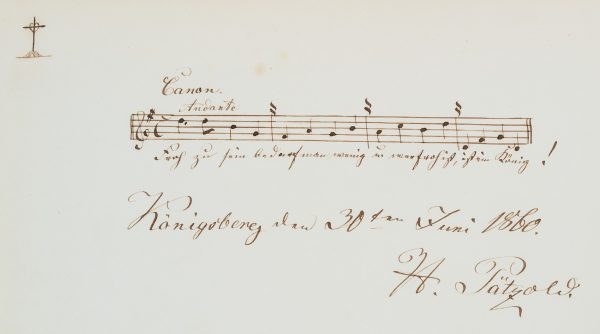 Canon.
Andante
Froh zu sein bedarf man wenig u wer froh ist, ist ein König !
Königsberg den 30ten Juni 1860.
W. Pätzold.